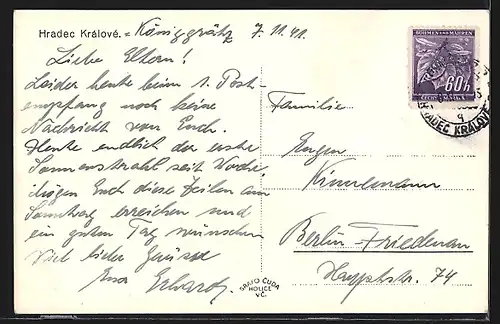 Hradec Králové. - Königgrätz 7.11.41.
Liebe Eltern!
Leider heute beim 1. Post-
empfang noch keine
Nachricht von Euch.
Heute endlich der erste
Sonnenstrahl seit Woche.
Mögen Euch diese Zeilen am
Sonntag erreichen und
ein guten Tag wünschen
Viel liebe Grüsse
Euer Erhard.
BÖHMEN UND MÄHREN
60h
ČECHY A MORAVA
HRADEC KRÁLOVÉ
Familie
Eugen
Berlin-Friedenau
Hauptstr. 74
GRAFO ČUDA
HOLICE
V.Č.